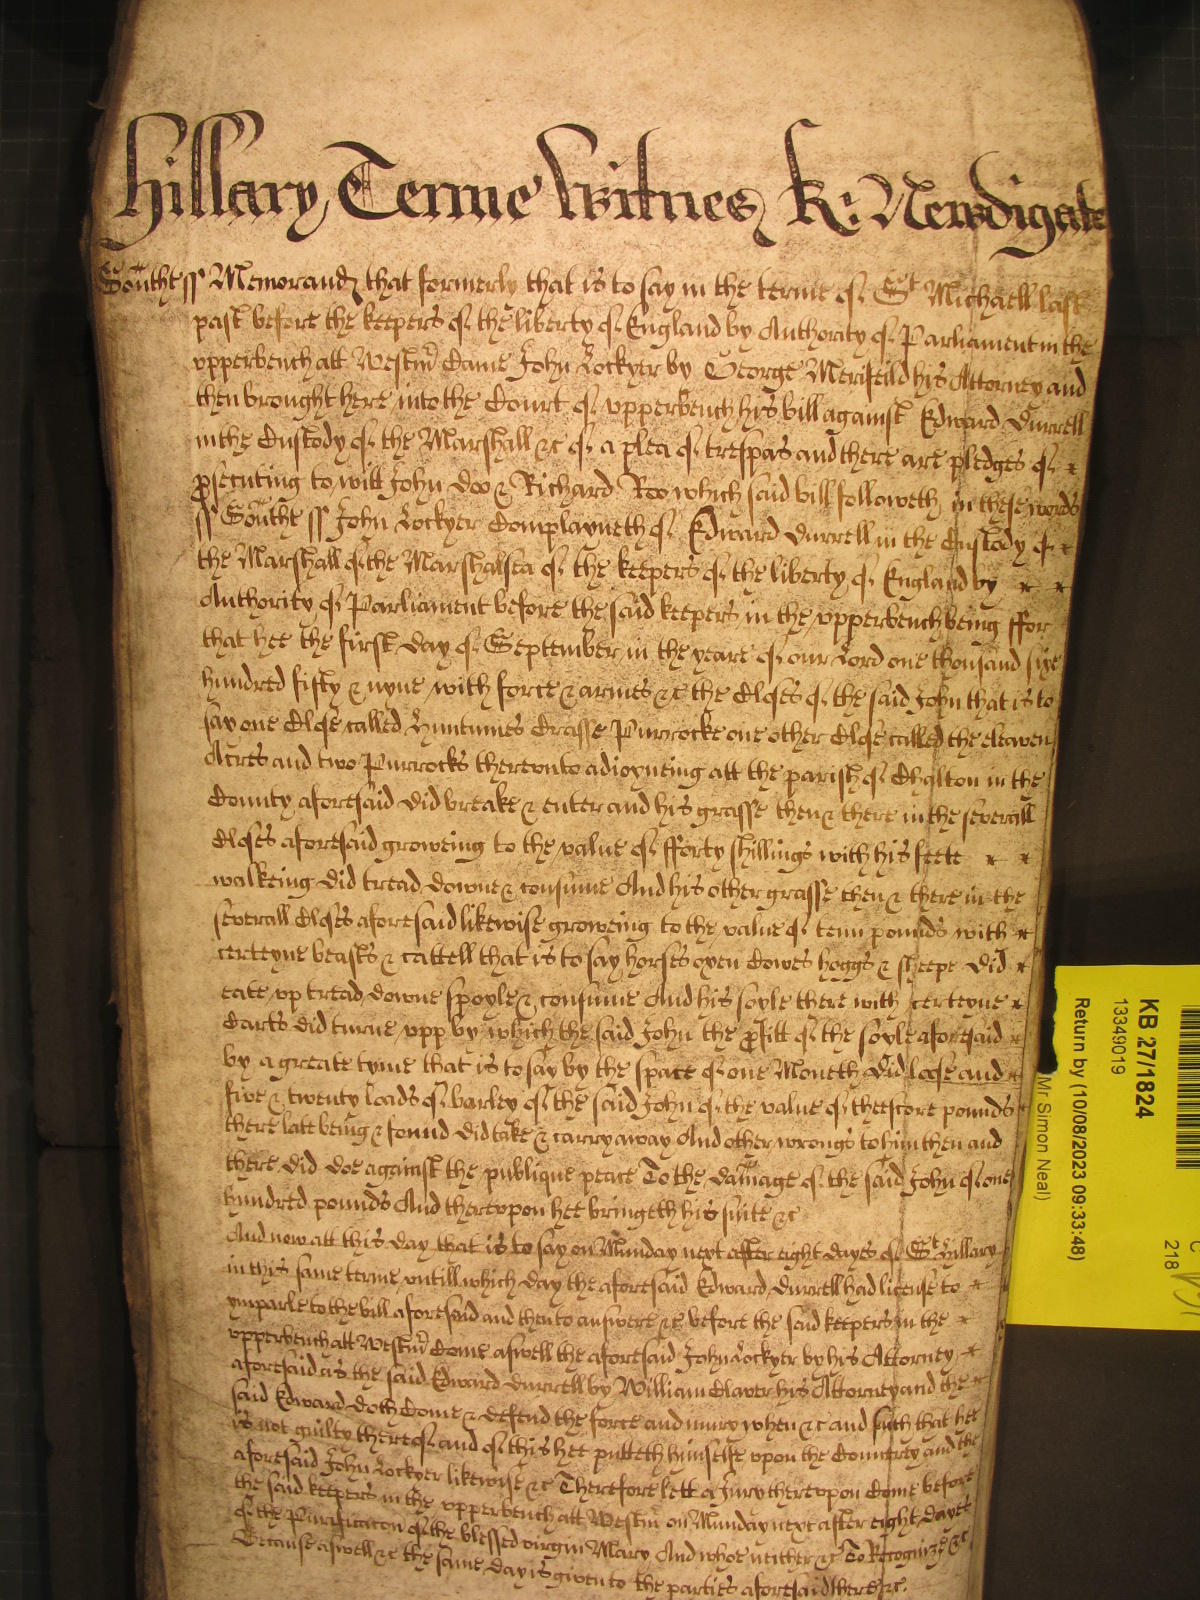 Hillary Terme Witnes R: Newdigate
Southt ss Memorand that formerly that is to say in the terme of St Michaell last
past before the keepers of the liberty of England by Authority of Parliament in the
upperbench att Westmr Came John Lockyer by George Merifeild his Attorney and
then brought here into the Court of upperbench his bill against Edward Durrell
in the Custody of the Marshall &c of a plea of trespas and there are pledges of
psecuting to witt John Doo & Richard Roo which said bill followeth in these words
ss Southt ss John Lockyer Complayneth of Edward Durrell in the Custody of
the Marshall of the Marshalsea of the keepers of the liberty of England by
Authority of Parliament before the said keepers in the upperbench being ffor
that hee the first day of September in the yeare of our Lord one thousand sixe
hundred fifty & nyne with force & armes &c the Closes of the said John that is to
say one Close called Purrocke one other Close called the eleaven
Acres and two Purrocks thereunto adioyneing att the parish of Chalton in the
County aforesaid did breake & enter and his grasse then & there in the severall
Closes aforesaid groweing to the value of fforty shillings with his feete
walkeing did tread downe & consume And his other grasse then & there in the
severall Closes aforesaid likewise groweing to the value of tenn pounds with
certeyne beasts & cattell that is to say horses oxen Cowes hoggs & sheepe did
eate up tread downe spoyle & consume And his soyle there with certeyne
Carts did turne upp by which the said John the pfitt of the soyle aforesaid
by a greate tyme that is to say by the space of one Moneth did loose and
five & twenty loads of barley of the said John of the value of theescore pounds
there late being & found did take & carry away And other wrongs to him then and
there did doe against the publique peace To the damage of the said John of one
hundred pounds And thereupon hee bringeth his suite &c
And now att this day that is to say on Munday next after eight dayes of St Hillary
in this same terme untill which day the aforesaid Edward Durrell had license to
imparle to the bill aforesaid and then to answere &c before the said keepers in the
upperbench att Westmr Come aswell the aforesaid John Lockyer by his Attorney
aforesaid as the said Edward Durrell by William Claver his Attorney and the
said Edward doth Come & defend the force and iniury when &c and saith that hee
is not guilty thereof and of this hee putteth himselfe upon the Countrey and the
aforesaid John Lockyer likewise &c Therefore lett a Jury thereupon Come before
the said keepers in the upperbench att Westmr on Munday next after eight dayes
of the Purificacon of the blessed virgin Mary And whoe neither &c To Recognize &c
Because aswell &c the same day is given to the parties aforesaid there &c.
KB 27/1824
13349019
Return by (10/08/2023 09:33:48)
Mr Simon Neal)
218